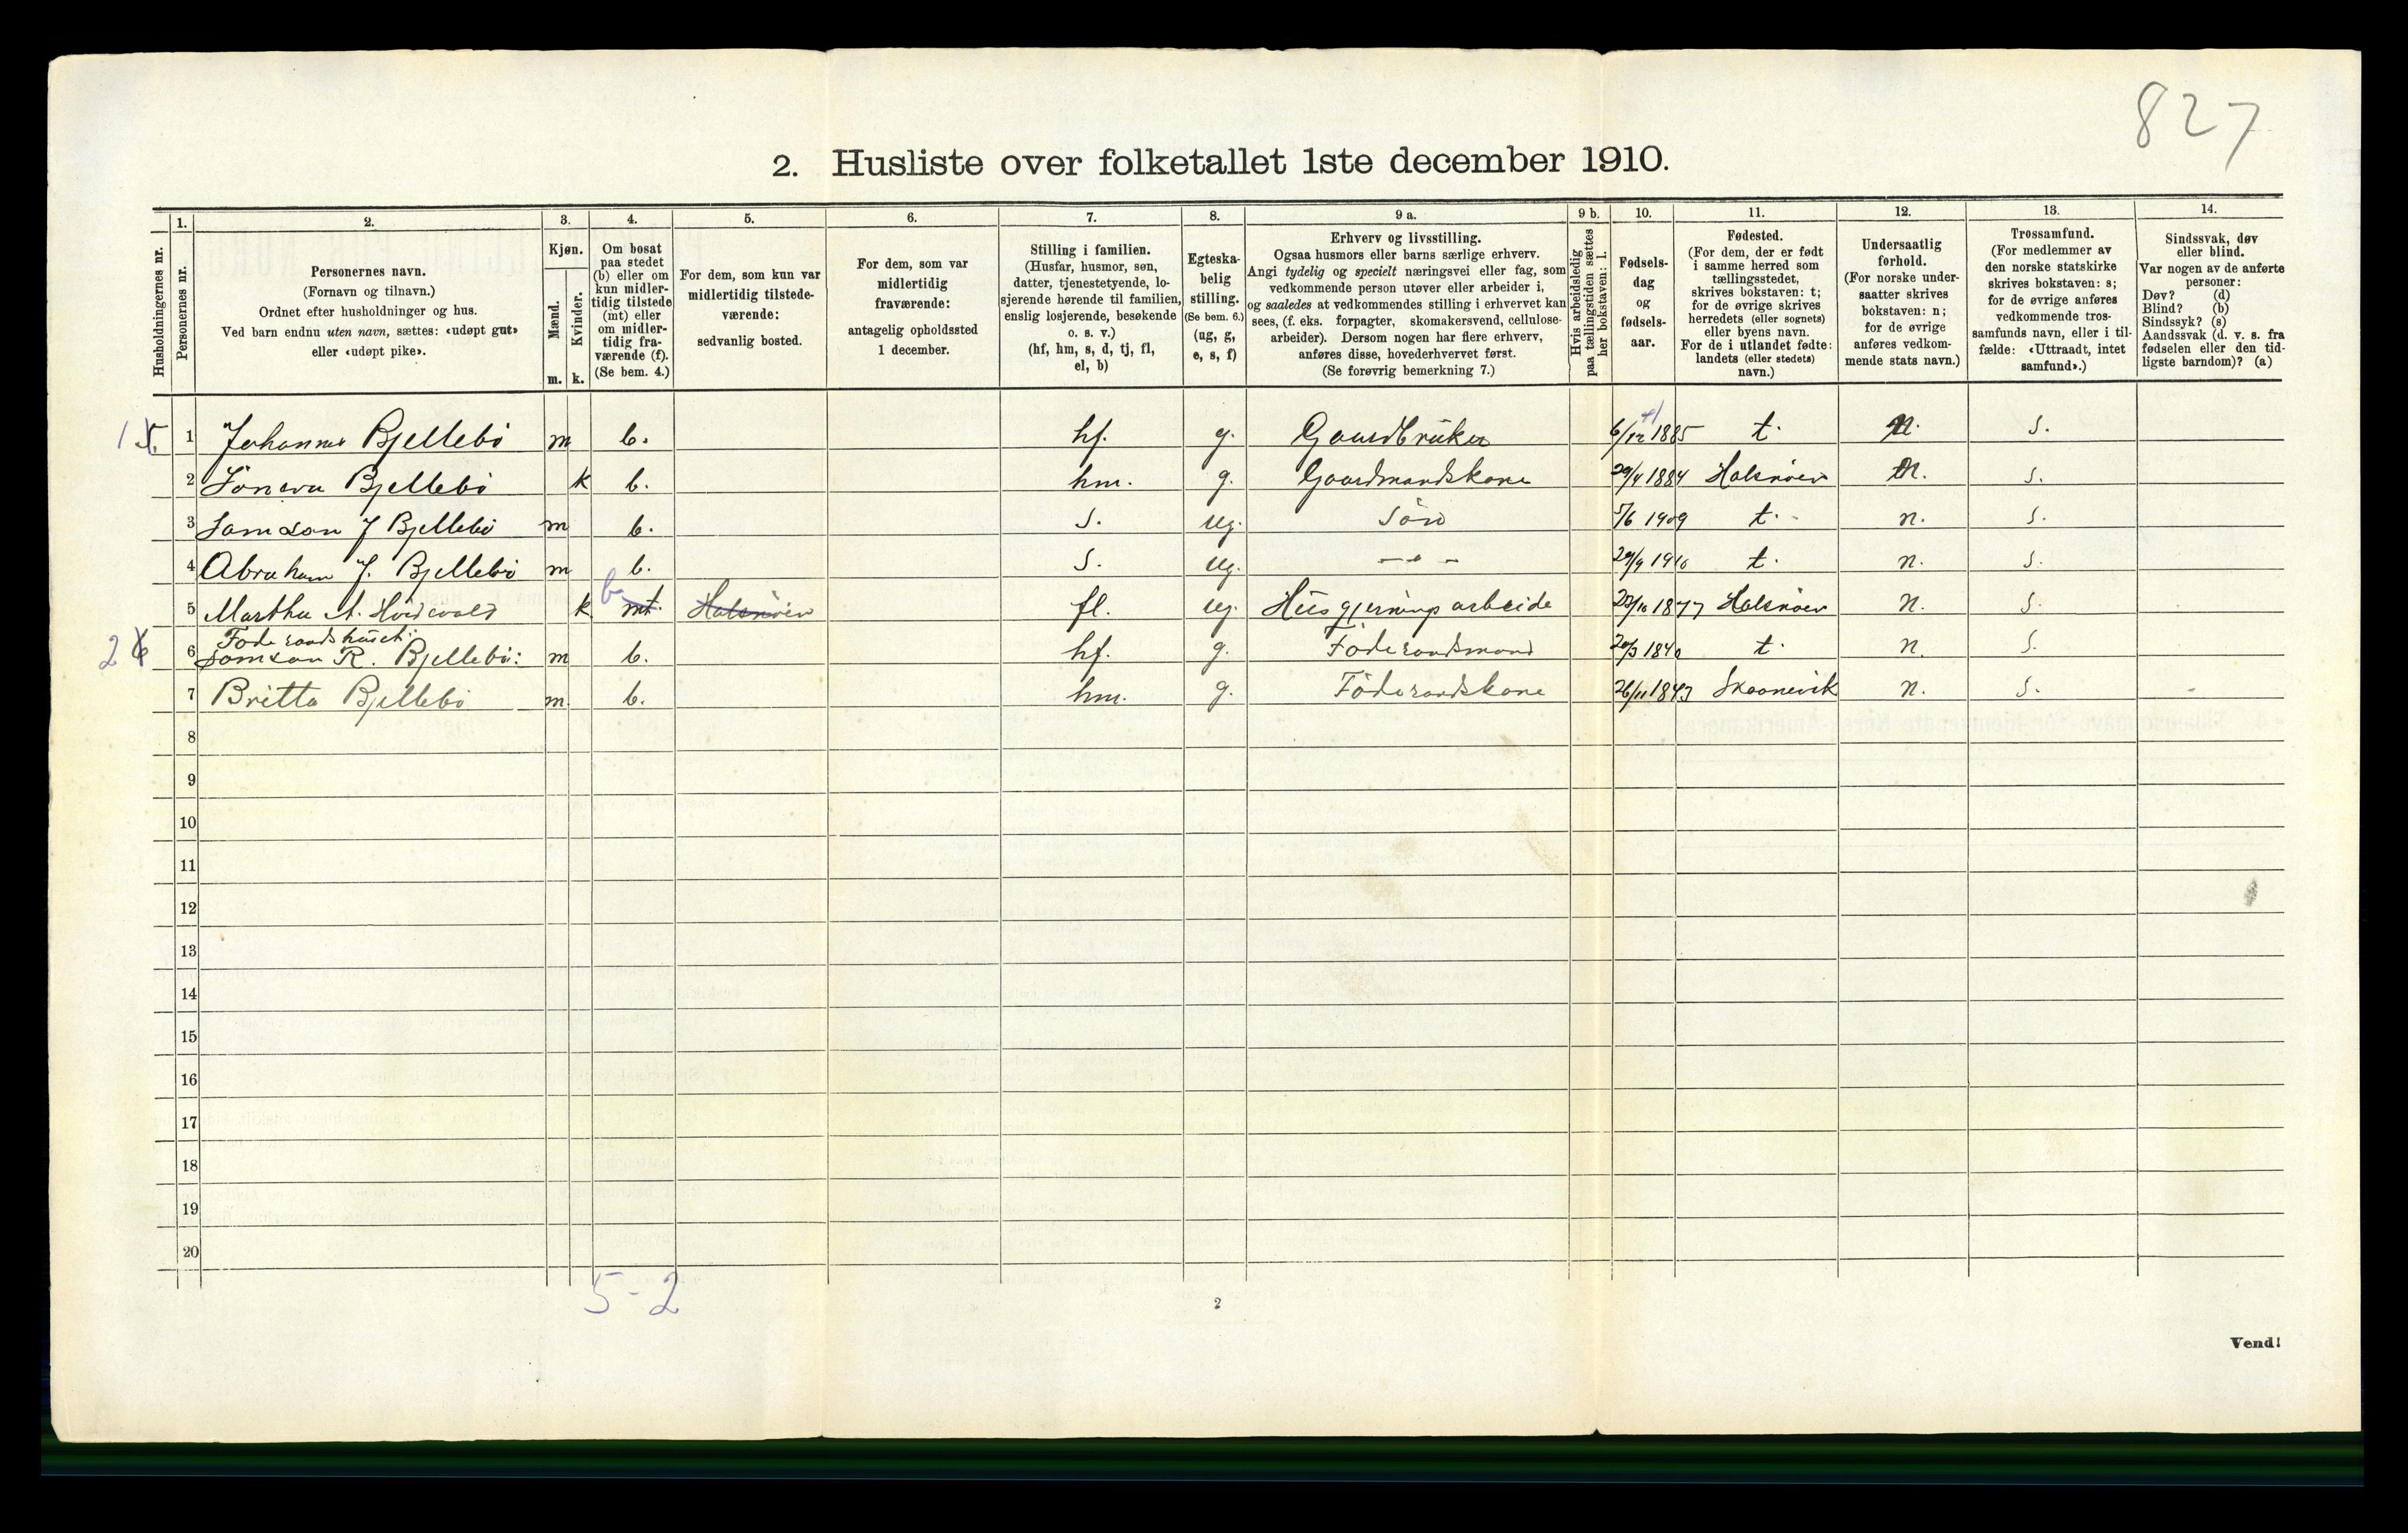 827
2. Husliste over folketallet 1ste december 1910.
Husholdningernes nr.
1.
Personernes nr.
2.
Personernes navn.
(Fornavn og tilnavn.)
Ordnet efter husholdninger og hus.
Ved barn endnu uten navn, sættes: «udøpt gut»
eller «udøpt pike».
3.
Kjøn.
Mænd.
Kvinder.
m. k.
4.
Om bosat
paa stedet
(b) eller om
kun midler-
tidig tilstede
(mt) eller
om midler-
tidig fra-
værende (f).
(Se bem. 4.)
5.
For dem, som kun var
midlertidig tilstede-
værende:
sedvanlig bosted.
6.
For dem, som var
midlertidig
fraværende:
antagelig opholdssted
1 december.
7.
Stilling i familien.
(Husfar, husmor, søn,
datter, tjenestetyende, lo-
sjerende hørende til familien,
enslig losjerende, besøkende
o. s. v.)
(hf, hm, s, d, tj, fl,
el, b)
8.
Egteska-
belig
stilling.
(Se bem. 6.)
(ug, g,
e, s, f)
9 a.
Erhverv og livsstilling.
Ogsaa husmors eller barns særlige erhverv.
Angi tydelig og specielt næringsvei eller fag, som
vedkommende person utøver eller arbeider i,
og saaledes at vedkommendes stilling i erhvervet kan
sees, (f. eks. forpagter, skomakersvend, cellulose-
arbeider). Dersom nogen har flere erhverv,
anføres disse, hovederhvervet først.
(Se forøvrig bemerkning 7.)
9 b.
Hvis arbeidsledig
paa tællingstiden sættes
her bokstaven: l.
10.
Fødsels-
dag
og
fødsels-
aar.
11.
Fødested.
(For dem, der er født
i samme herred som
tællingsstedet,
skrives bokstaven: t;
for de øvrige skrives
herredets (eller sognets)
eller byens navn.
For de i utlandet fødte:
landets (eller stedets)
navn.)
12.
Undersaatlig
forhold.
(For norske under-
saatter skrives
bokstaven: n;
for de øvrige
anføres vedkom-
mende stats navn.)
13.
Trossamfund.
(For medlemmer av
den norske statskirke
skrives bokstaven: s;
for de øvrige anføres
vedkommende tros-
samfunds navn, eller i til-
fælde: «Uttraadt, intet
samfund».)
14.
Sindssvak, døv
eller blind.
Var nogen av de anførte
personer:
Døv? (d)
Blind? (b)
Sindssyk? (s)
Aandssvak (d. v. s. fra
fødselen eller den tid-
ligste barndom)? (a)
1 5. 1 Johannes Bjellebö m b. hf. g. Gaardbrüker 6/12 1885 t. n. s.
2 Bjellebö k b. hm. g. Gaardmandskone 29/4 1884 Halsnöen n. s.
3 Samson J Bjellebö m b. s. ug. Sön 5/6 1909 t. n. s.
4 Abraham J. Bjellebö m b. s. ug. - " - 29/9 1910 t. n. s.
5 Martha A. k b mt. Halsnöen fl. ug. Hüsgjernings arbeide 1877 Halsnöen n. s.
Föderaadshuset:
2 6 6 Samson R. Bjellebö: m b. hf. g. Föderaadsmand 20/3 1840 t. n. s.
7 Britta Bjellebö m. b. hm. g. Föderaadskone 26/11 1843 Skaanevik n. s.
8
9
10
11
12
13
14
15
16
17
18
19
20
5 - 2
2
Vend!